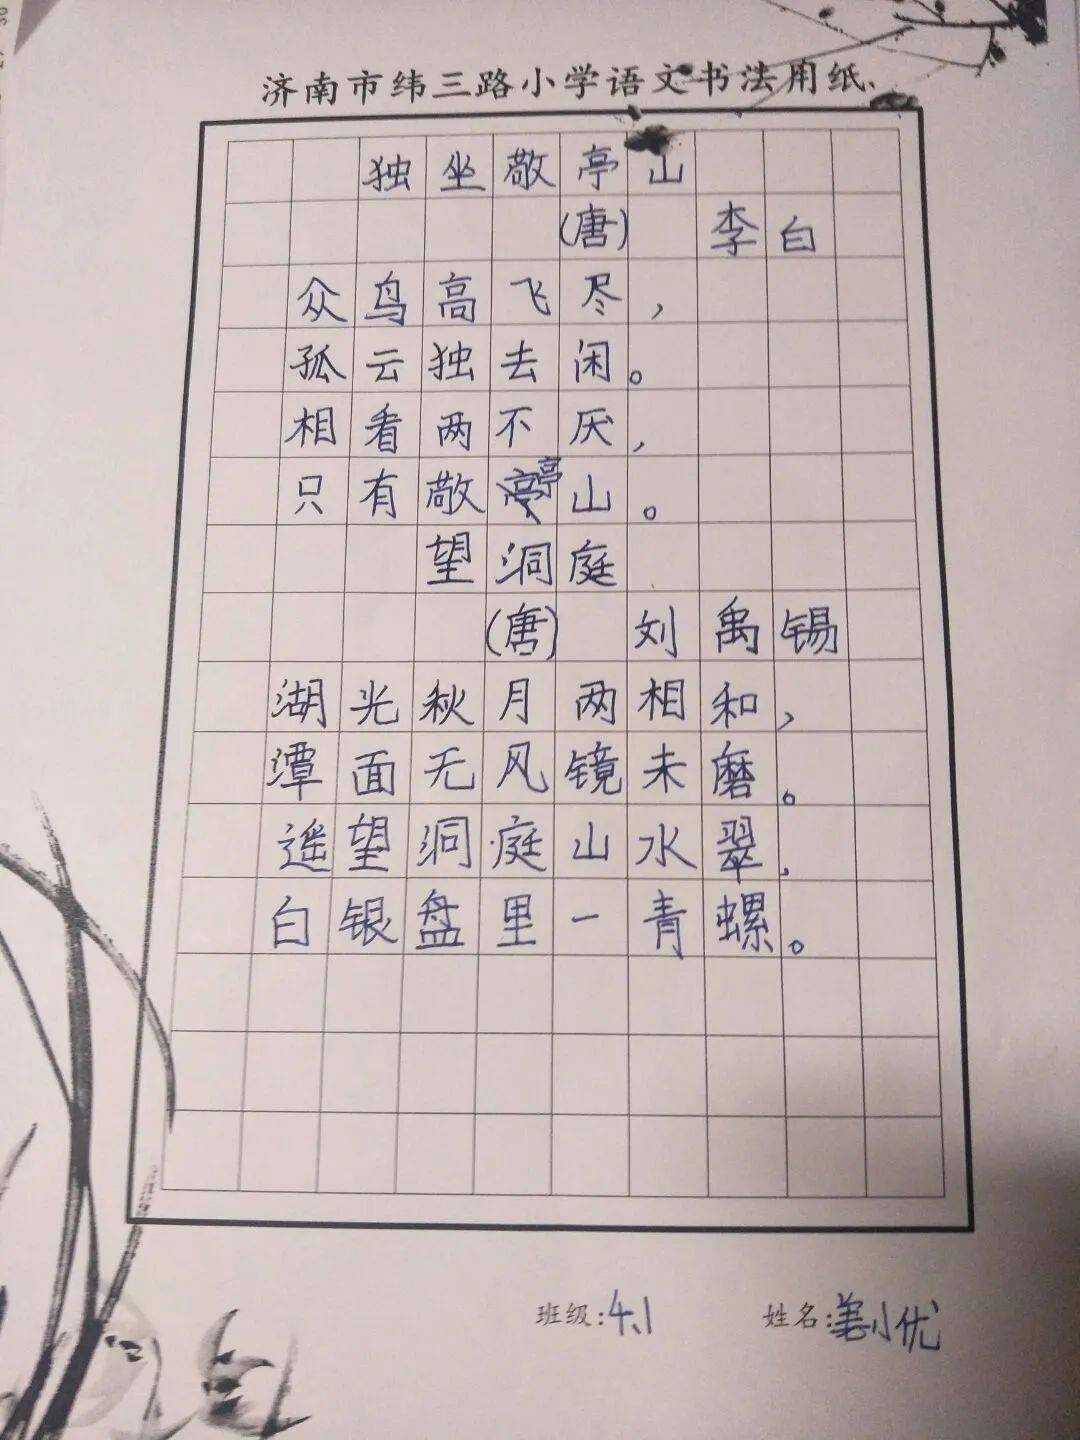 济南市纬三路小学语文书法用纸
独坐敬亭山
(唐) 李白
众鸟高飞尽，
孤云独去闲。
相看两不厌，
只有敬亭山。
望洞庭
(唐) 刘禹锡
湖光秋月两相和，
潭面无风镜未磨。
遥望洞庭山水翠，
白银盘里一青螺。
班级:4.1 姓名:姜小优